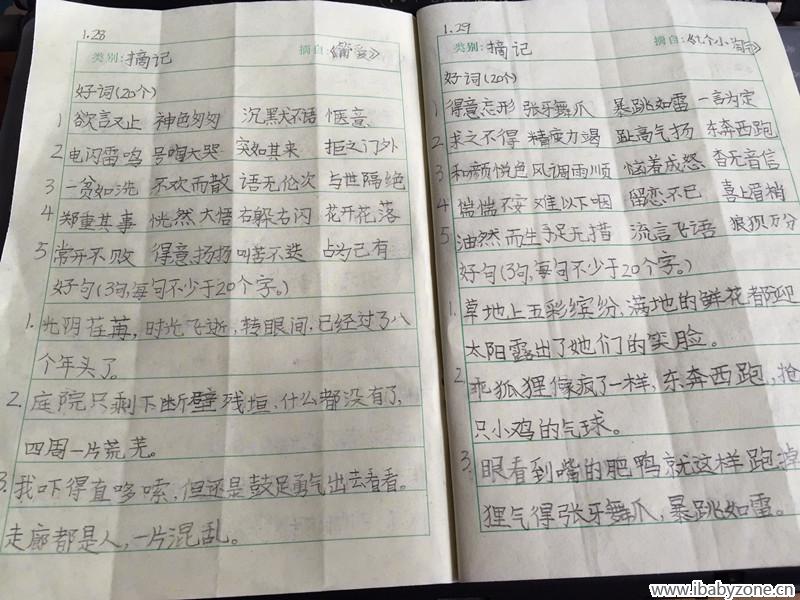 1.28
类别:摘记 摘自:《简爱》
好词(20个)
1 欲言又止 神色匆匆 沉默不语 惬意
2 电闪雷鸣 号啕大哭 突如其来 拒之门外
3 一贫如洗 不欢而散 语无伦次 与世隔绝
4 郑重其事 恍然大悟 右躲右闪 花开花落
5 常开不败 得意扬扬 叫苦不迭 占为己有
好句(3句,每句不少于20个字。)
1. 光阴荏苒,时光飞逝,转眼间,已经过了八
个年头了。
2. 庭院只剩下断壁残垣,什么都没有了,
四周一片荒芜。
3. 我吓得直哆嗦,但还是鼓足勇气出去看看。
走廊都是人,一片混乱。
1.29
类别:摘记 摘自:
好词(20个)
1 得意忘形 张牙舞爪 暴跳如雷 一言为定
2 求之不得 精疲力竭 趾高气扬 东奔西跑
3 和颜悦色 风调雨顺 恼羞成怒 杳无音信
4 惴惴不安 难以下咽 留恋不已 喜上眉梢
5 油然而生 手足无措 流言飞语 狼狈万分
好句(3句,每句不少于20个字。)
1. 草地上五彩缤纷,满地的鲜花都迎
太阳露出了她们的笑脸。
2. 乖狐狸像疯了一样,东奔西跑,抢
只小鸡的气球。
3. 眼看到嘴的肥鸭就这样跑掉
狸气得张牙舞爪,暴跳如雷。
www.ibabyzone.cn